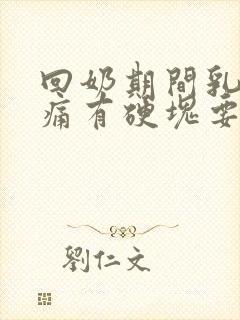 回奶期間乳
痛有硬塊要
劉仁文